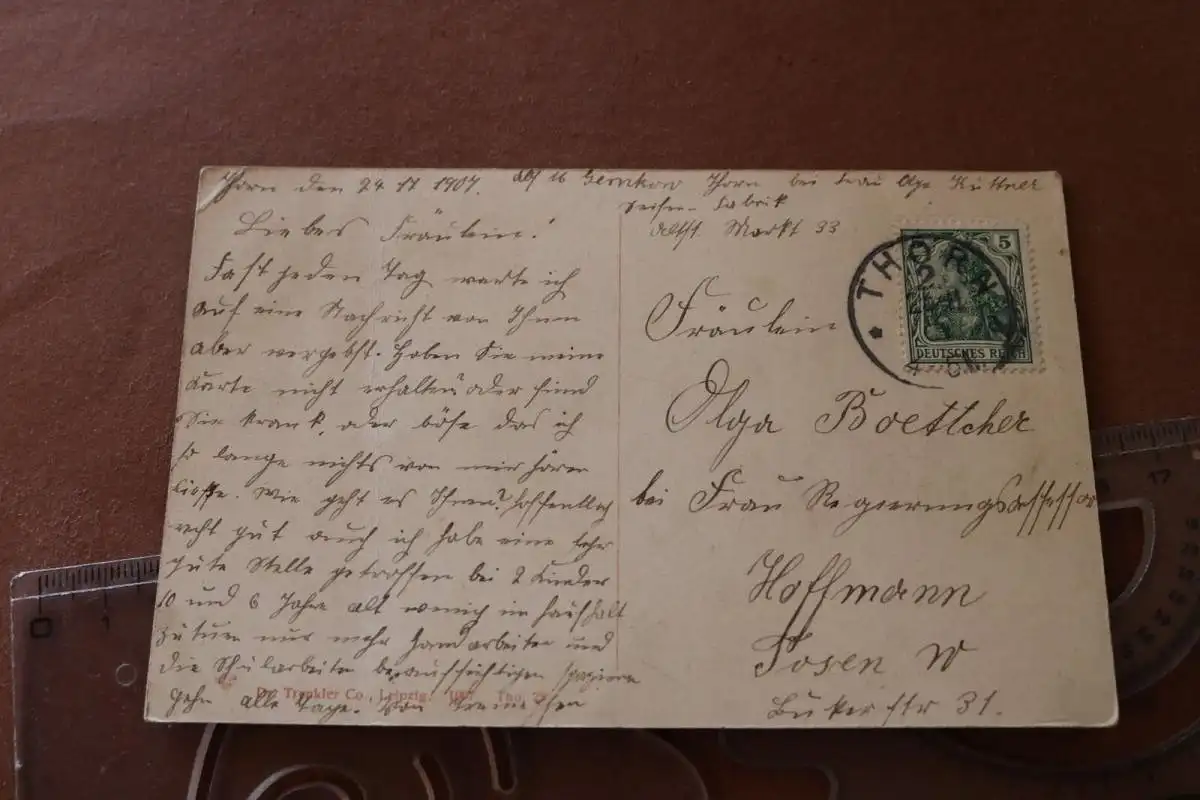 Thorn den 24 11 1907. Abs
bei Frau Olga Kuttner
Seifen-Fabrik
Altst. Markt 33
Liebes Fräulein!
Fast jeden Tag warte ich
auf eine Nachricht von Ihnen
aber vergebst. Haben Sie meine
Karte nicht erhalten oder sind
Sie krank, oder böse das ich
so lange nichts von mir hören
liesse. Wie geht es Ihnen? hoffentlich
recht gut auch ich habe eine sehr
gute Stelle getroffen bei 2 Kinder
10 und 6 Jahre alt wenich im haushalt
zutuen nur mehr Handarbeiten und
die Schularbeiten beraufsichtigen spaziern
gehn alle Tage. Von
Dr. Trenkler Co., Leipzig. Tho.
THORN
5
DEUTSCHES REICH
Fräulein
Olga Boettcher
bei Frau Regierungsassessor
Hoffmann
Posen W
Bukerstr 31.
0 1
17